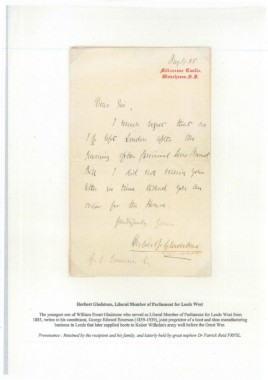 Aug 6. 85
Dear Sir,
I much regret that as
I left London after the
reading of the
Bill I did not receive your
letter in time to send you an
order for the House.
Faithfully yours
Herbert J. Gladstone
Herbert Gladstone, Liberal Member of Parliament for Leeds West
The youngest son of William Ewart Gladstone who served as Liberal Member of Parliament for Leeds West from
1885, writes to his constituent, George Edward Emerson (1859-1939), joint proprietor of a boot and shoe manufacturing
business in Leeds that later supplied boots to Kaiser Wilhelm's army well before the Great War.
Provenance : Retained by the recipient and his family, and latterly held by great nephew Dr Patrick Reid FRPSL.